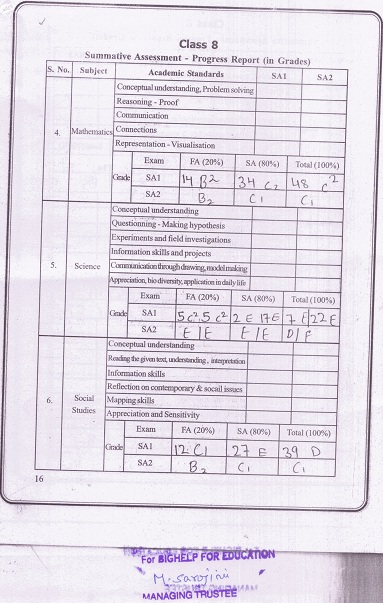 Class 8
Summative Assessment - Progress Report (in Grades)
S. No. Subject Academic Standards SA1 SA2
Conceptual understanding, Problem solving
Reasoning - Proof
Communication
4. Mathematics Connections
Representation - Visualisation
Exam FA (20%) SA (80%) Total (100%)
Grade SA1 14 B2 34 C2 48 C2
SA2 B2 C1 C1
Conceptual understanding
Questionning - Making hypothesis
Experiments and field investigations
Information skills and projects
5. Science Communication through drawing, model making
Appreciation, bio diversity, application in daily life
Exam FA (20%) SA (80%) Total (100%)
Grade SA1 5 C2. 5 C2 2 E 17 E 7 E 22 E
SA2 E/E E/E D/F
Conceptual understanding
Reading the given text, understanding, interpretation
Information skills
Reflection on contemporary & socail issues
6. Social Studies Mapping skills
Appreciation and Sensitivity
Exam FA (20%) SA (80%) Total (100%)
Grade SA1 12 C1 27 E 39 D
SA2 B2 C1 C1
16
For BIGHELP FOR EDUCATION
M. Sarojini
MANAGING TRUSTEE